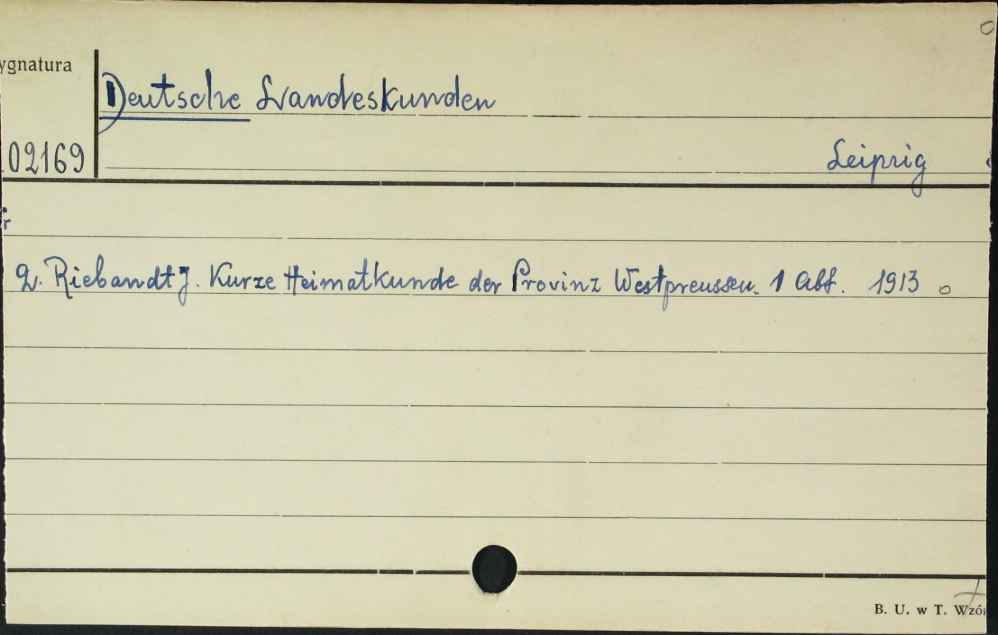 ygnatura
Deutsche Landeskunden
02169
Leipzig
r
2. Riebandt J. Kurze Heimatkunde der Provinz Westpreussen. 1 Abt. 1913
B. U. w T. Wzó